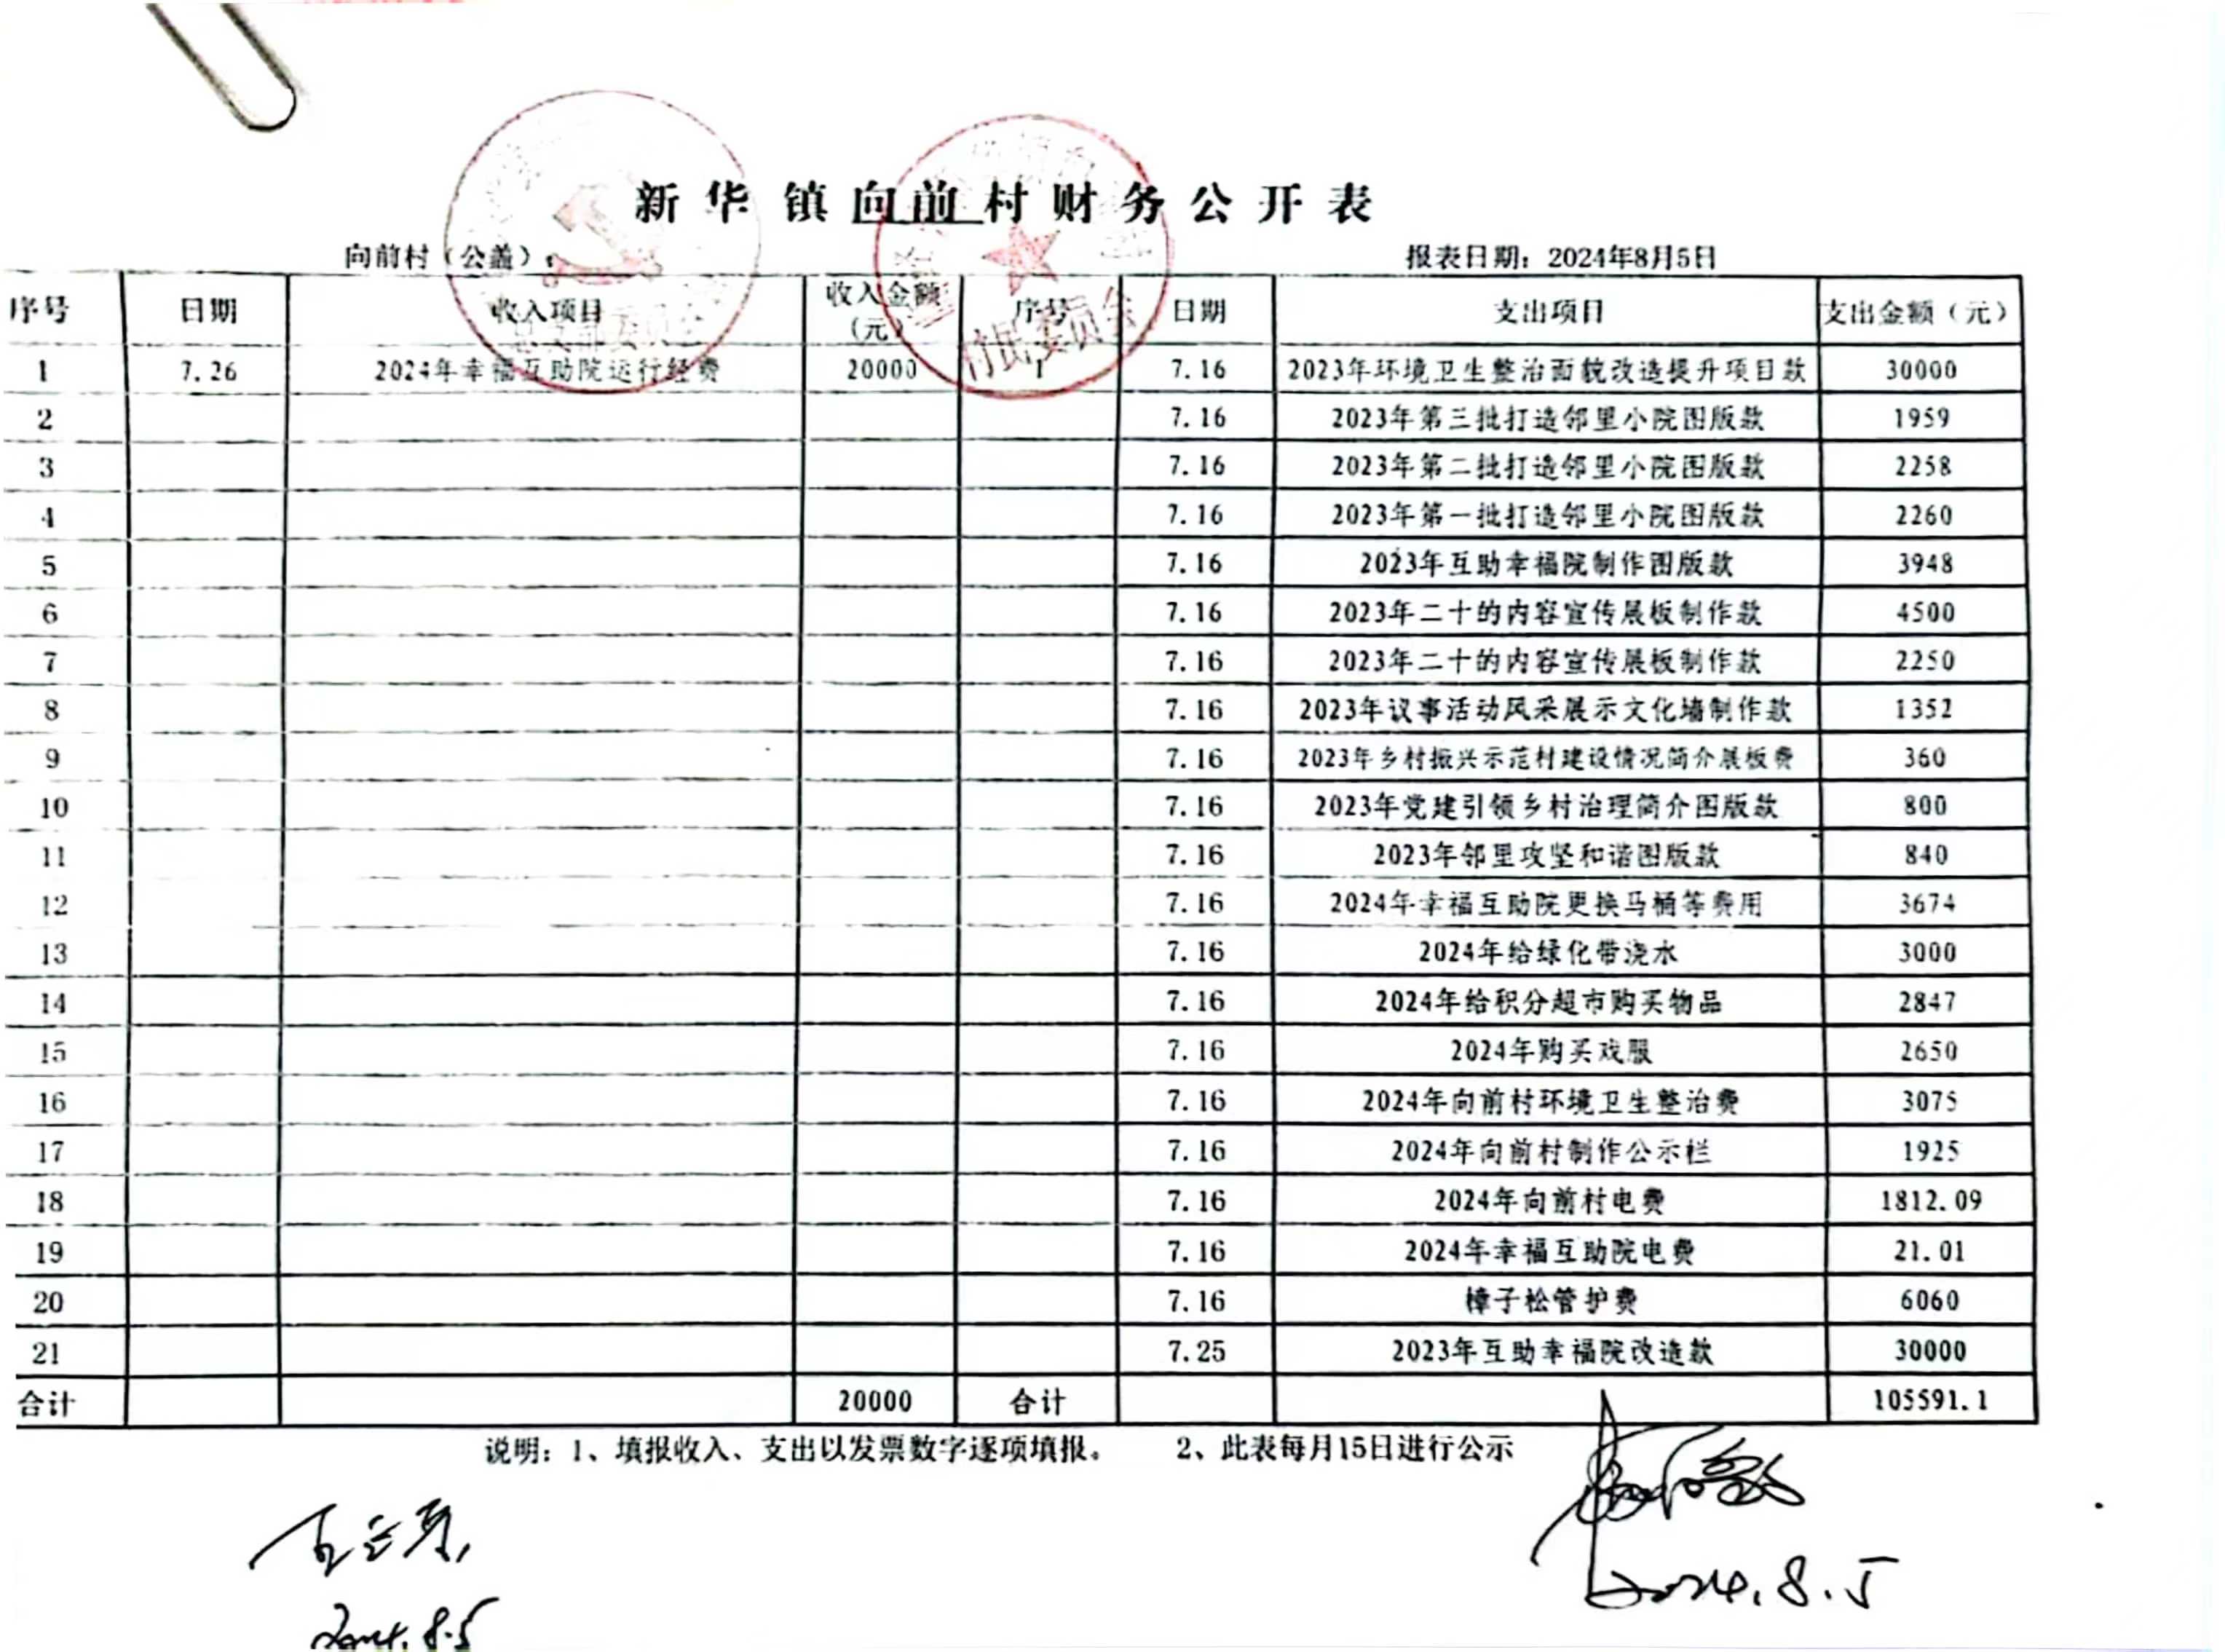 新华镇向前村财务公开表
向前村（公盖）： 报表日期：2024年8月5日
序号 日期 收入项目 收入金额（元） 序号 日期 支出项目 支出金额（元）
1 7.26 2024年幸福互助院运行经费 20000 1 7.16 2023年环境卫生整治面貌改造提升项目款 30000
2 7.16 2023年第三批打造邻里小院图版款 1959
3 7.16 2023年第二批打造邻里小院图版款 2258
4 7.16 2023年第一批打造邻里小院图版款 2260
5 7.16 2023年互助幸福院制作图版款 3948
6 7.16 2023年二十的内容宣传展板制作款 4500
7 7.16 2023年二十的内容宣传展板制作款 2250
8 7.16 2023年议事活动风采展示文化墙制作款 1352
9 7.16 2023年乡村振兴示范村建设情况简介展板费 360
10 7.16 2023年党建引领乡村治理简介图版款 800
11 7.16 2023年邻里攻坚和谐图版款 840
12 7.16 2024年幸福互助院更换马桶等费用 3674
13 7.16 2024年给绿化带浇水 3000
14 7.16 2024年给积分超市购买物品 2847
15 7.16 2024年购买戏服 2650
16 7.16 2024年向前村环境卫生整治费 3075
17 7.16 2024年向前村制作公示栏 1925
18 7.16 2024年向前村电费 1812.09
19 7.16 2024年幸福互助院电费 21.01
20 7.16 樟子松管护费 6060
21 7.25 2023年互助幸福院改造款 30000
合计 20000 合计 105591.1
说明：1、填报收入、支出以发票数字逐项填报。 2、此表每月15日进行公示
村民委员会
2024.8.5
2024.8.5